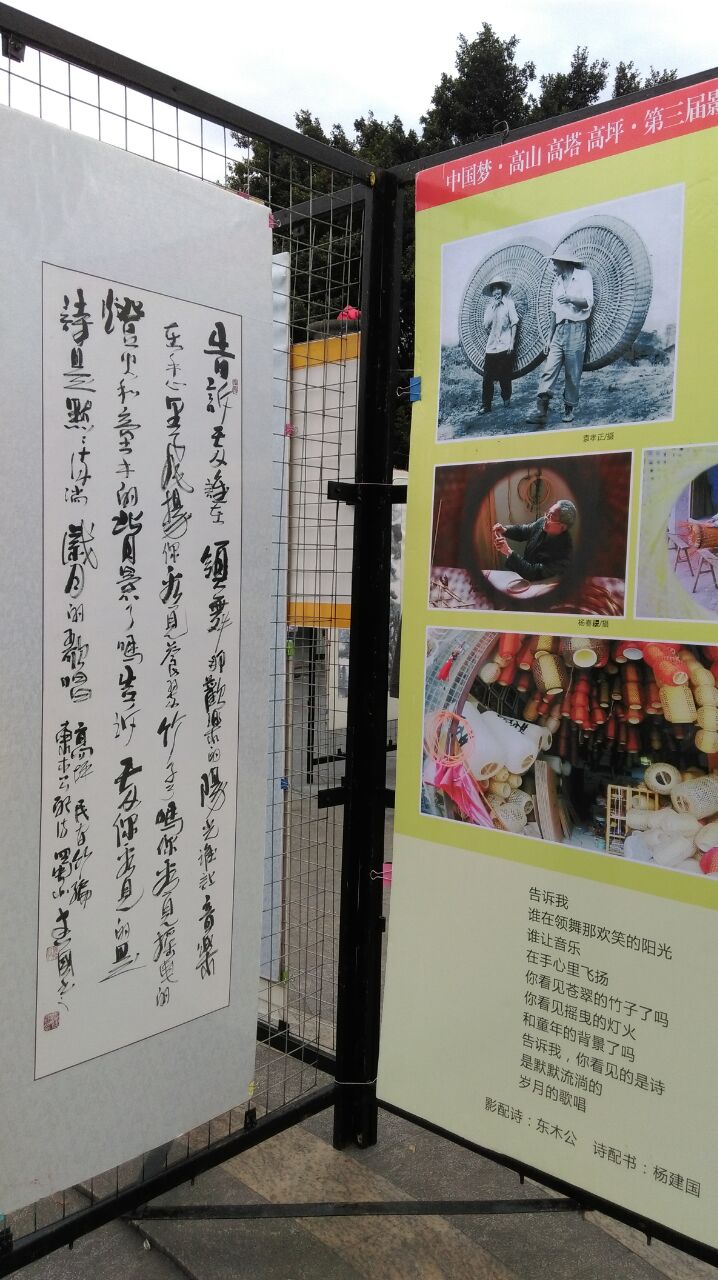 告訴我谁在领舞那歡樂的陽光谁让音樂
在手心里飞揚你看見苍翠竹子了嗎你看見摇曳的
燈火和童年的背景了嗎告诉我你看見的是
詩是默默流淌歲月的歌唱
高坪民间竹编
東木公配诗
「中国梦·高山 高塔 高坪·第三届影
袁孝正/摄
告诉我
谁在领舞那欢笑的阳光
谁让音乐
在手心里飞扬
你看见苍翠的竹子了吗
你看见摇曳的灯火
和童年的背景了吗
告诉我，你看见的是诗
是默默流淌的
岁月的歌唱
影配诗：东木公 诗配书：杨建国